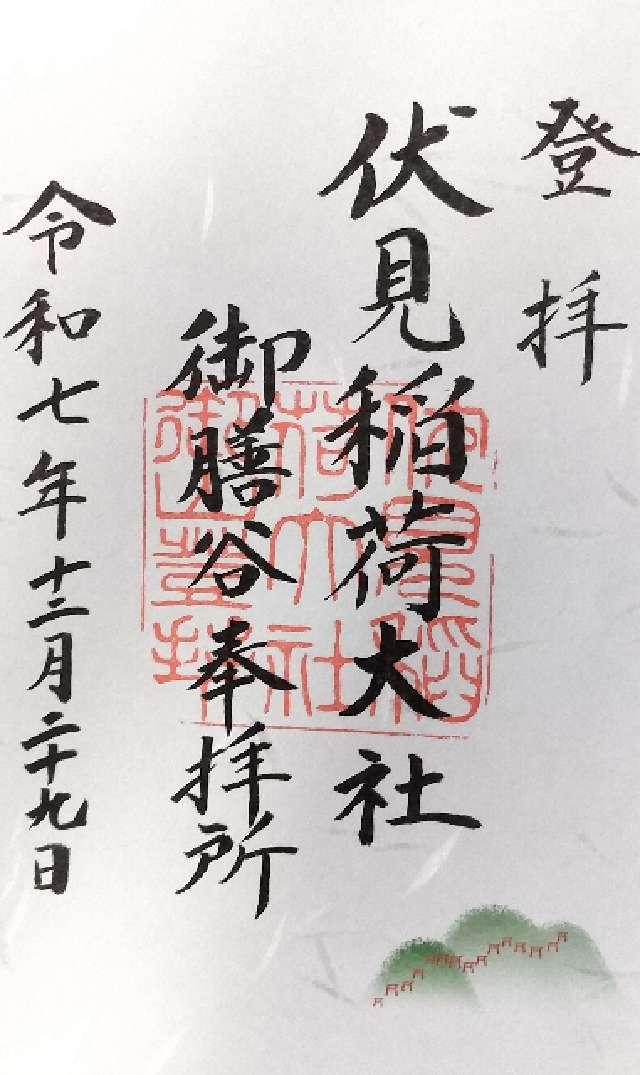 登拝
伏見稲荷大社
御膳谷奉拝所
令和七年十二月二十九日